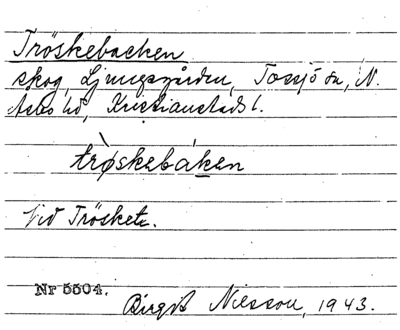 Tröskebacken
skog, Ljungsgården, Tossjö sn, N.
Åsbo hd, Kristianstads l.
trø̀skebáken
Vid Trösket.
Nr 5504.
Birgit Nilsson, 1943.